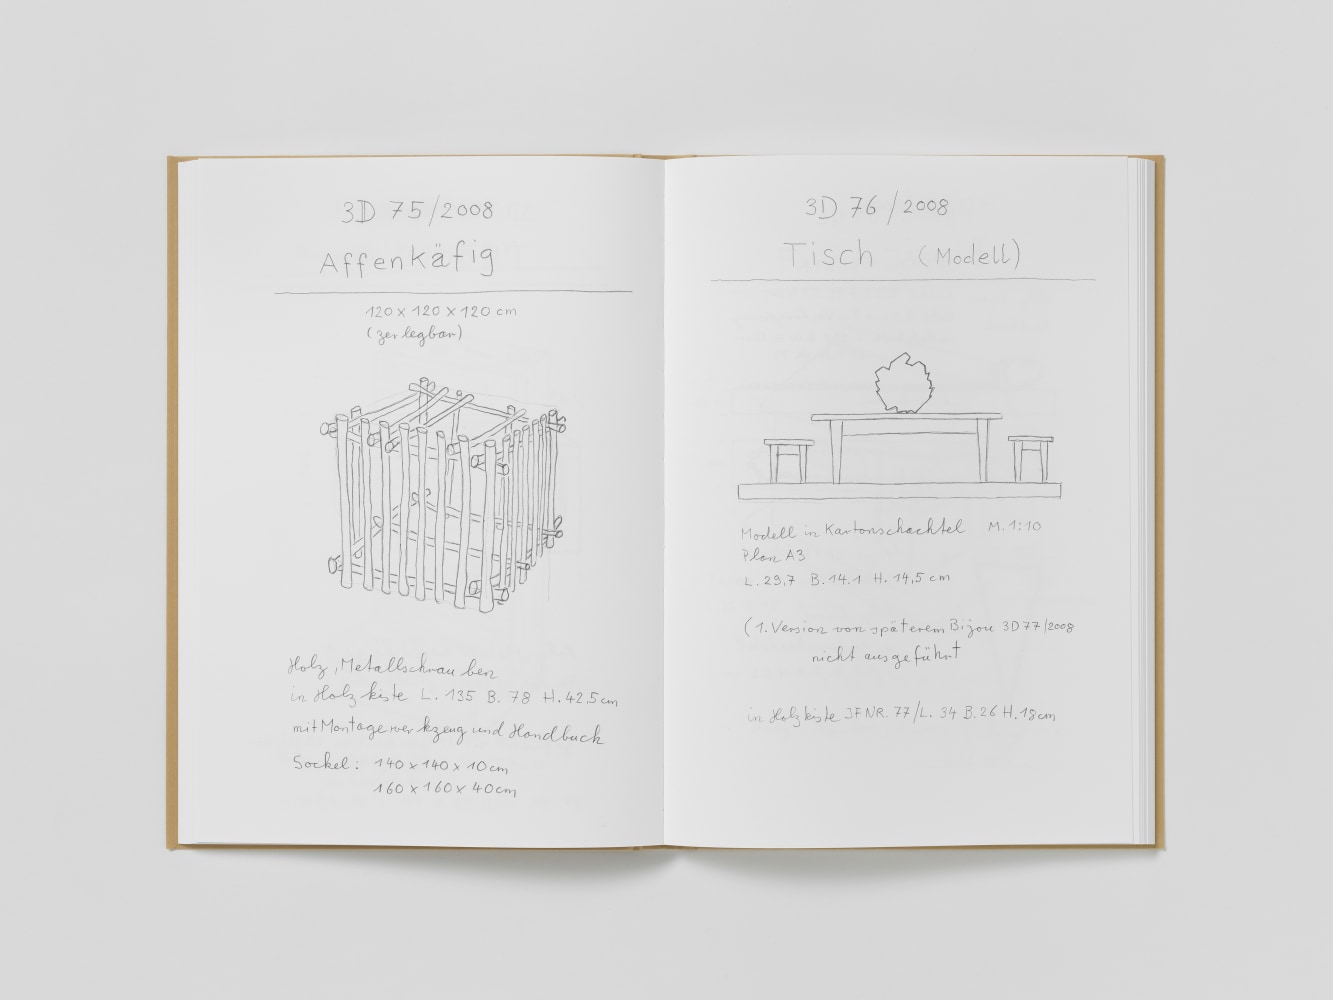 3D 75/2008
Affenkäfig
120 x 120 x 120 cm
(zerlegbar)
Holz, Metallschrauben
in Holzkiste L. 135 B. 78 H. 42,5 cm
mit Montagewerkzeug und Handbuch
Sockel: 140 x 140 x 10 cm
160 x 160 x 40 cm
3D 76/2008
Tisch (Modell)
Modell in Kartonschachtel M. 1:10
Plan A3
L. 29,7 B. 14.1 H. 14,5 cm
(1. Version von späterem Bijou 3D 77/2008
nicht ausgeführt
in Holzkiste JFNR. 77/L. 34 B. 26 H. 18 cm